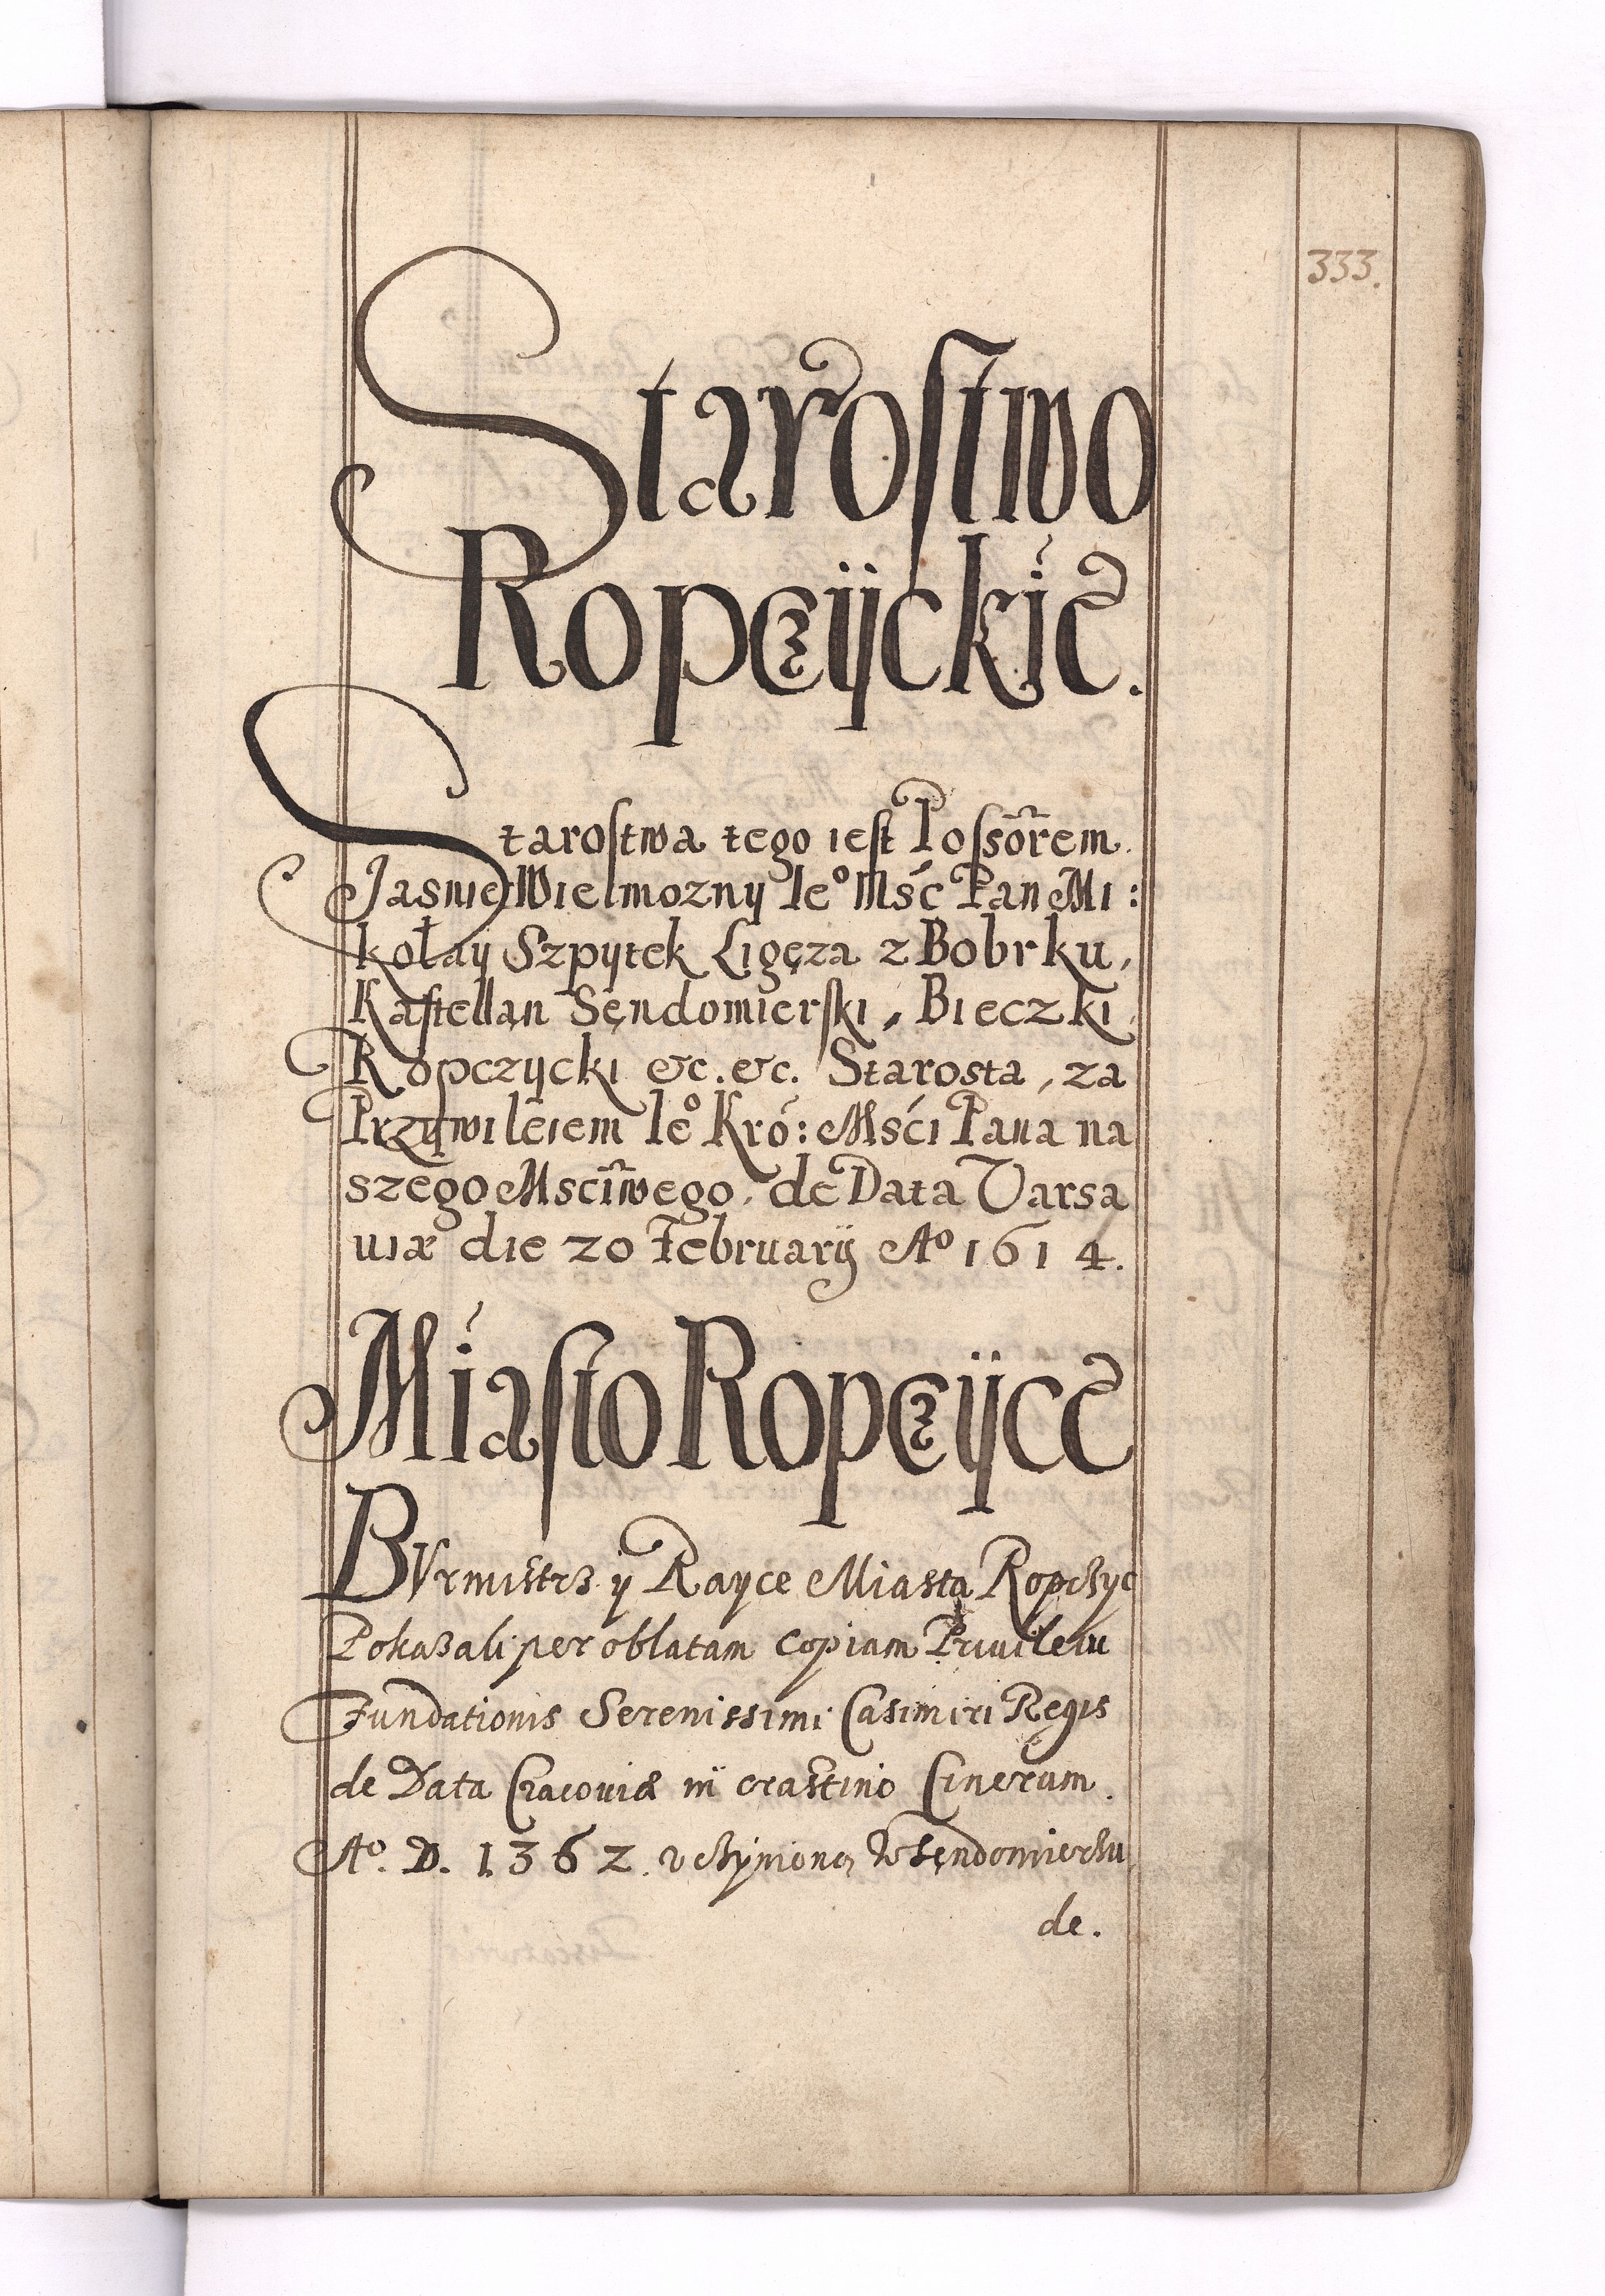 333.
Starostwo
Ropczyckie.
Starostwa tego iest Possorem
Jasnie Wielmozny Ieº Mść Pan Mi:
kołay Szpytek Ligęza z Bobrku,
Kastellan Sęndomierski, Bieczki
Ropczycki &c. &c. Starosta, za
Przywileiem Ieº Kró: Mści Pana na
szego Msciwego, de Data Varsa
uiæ die 20 February Aº 1614.
Miasto Ropczyce
BVrmistrz y Rayce Miasta Ropczyc
Pokazali per oblatam copiam Priuileiu
Fundationis Serenissimi Casimiri Regis
de Data Cracouiæ in crastino Cinerum.
Aº. D. 1362. vczyniono w Sęndomierzu
de.